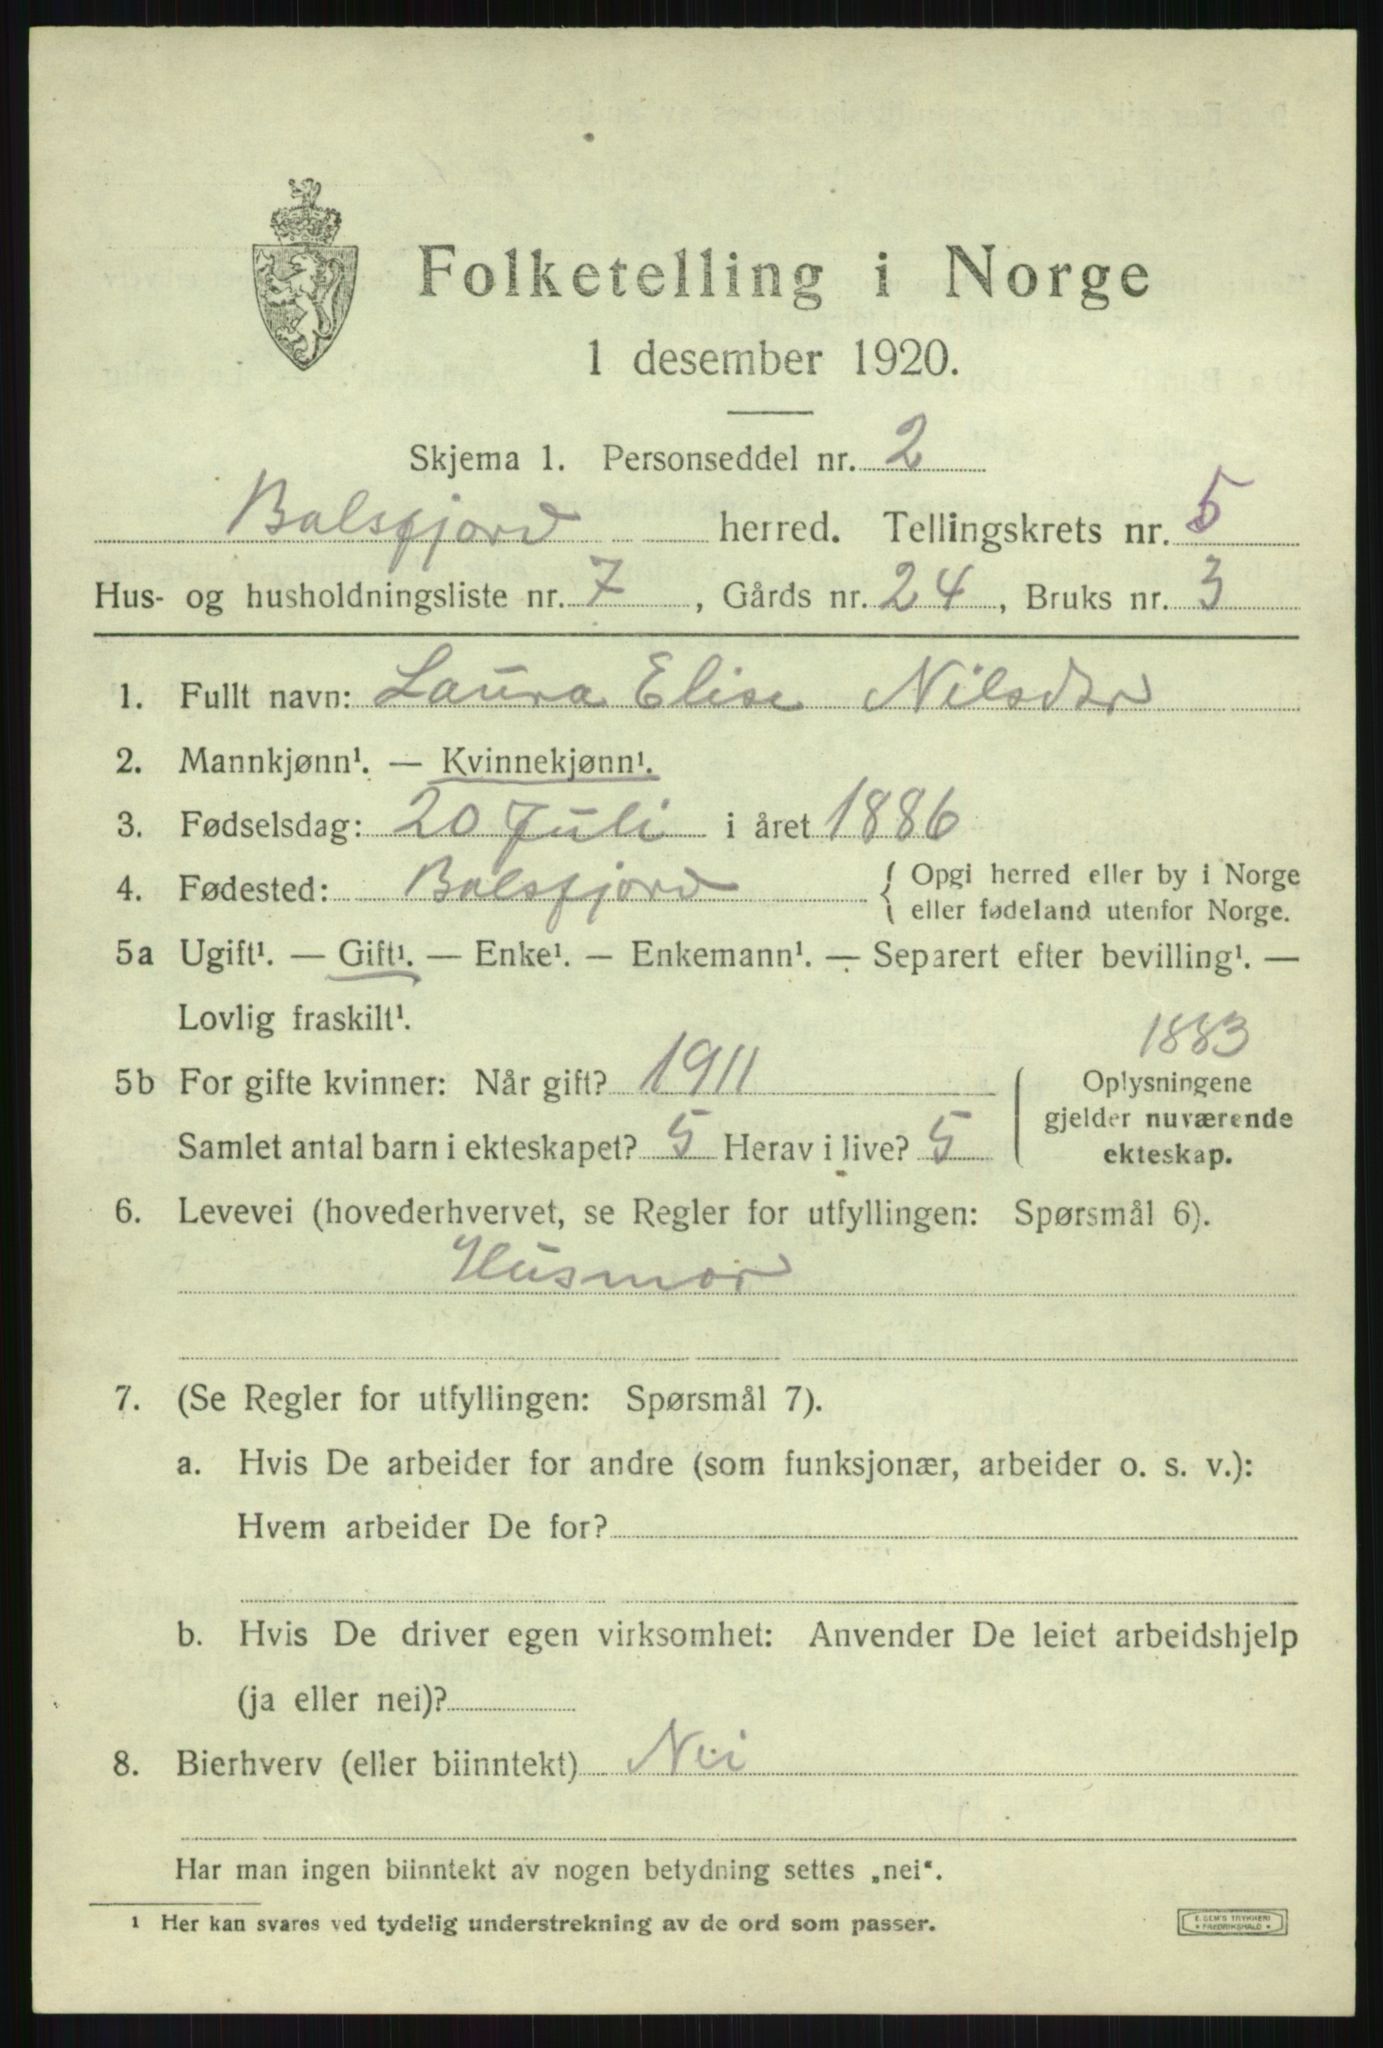 Folketelling i Norge
1 desember 1920.
Skjema 1. Personseddel nr. 2
Balsfjord herred. Tellingskrets nr. 5
Hus- og husholdningsliste nr. 7, Gårds nr. 24, Bruks nr. 3
1. Fullt navn: Laura Elise Nilsdtr
2. Mannkjønn¹. — Kvinnekjønn¹.
3. Fødselsdag: 20 Juli i året 1886
4. Fødested: Balsfjord { Opgi herred eller by i Norge
eller fødeland utenfor Norge.
5a Ugift¹. — Gift¹. — Enke¹. — Enkemann¹. — Separert efter bevilling¹. —
Lovlig fraskilt¹.
1883
5b For gifte kvinner: Når gift? 1911 Oplysningene
gjelder nuværende
Samlet antal barn i ekteskapet? 5 Herav i live? 5 ekteskap.
6. Levevei (hovederhvervet, se Regler for utfyllingen: Spørsmål 6).
Husmor
7. (Se Regler for utfyllingen: Spørsmål 7).
a. Hvis De arbeider for andre (som funksjonær, arbeider o. s. v.):
Hvem arbeider De for?
b. Hvis De driver egen virksomhet: Anvender De leiet arbeidshjelp
(ja eller nei)?
8. Bierhverv (eller biinntekt) Nei
Har man ingen biinntekt av nogen betydning settes „nei“.
¹ Her kan svares ved tydelig understrekning av de ord som passer.
E. SEM'S TRYKKERI
* FREDRIKSHALD *